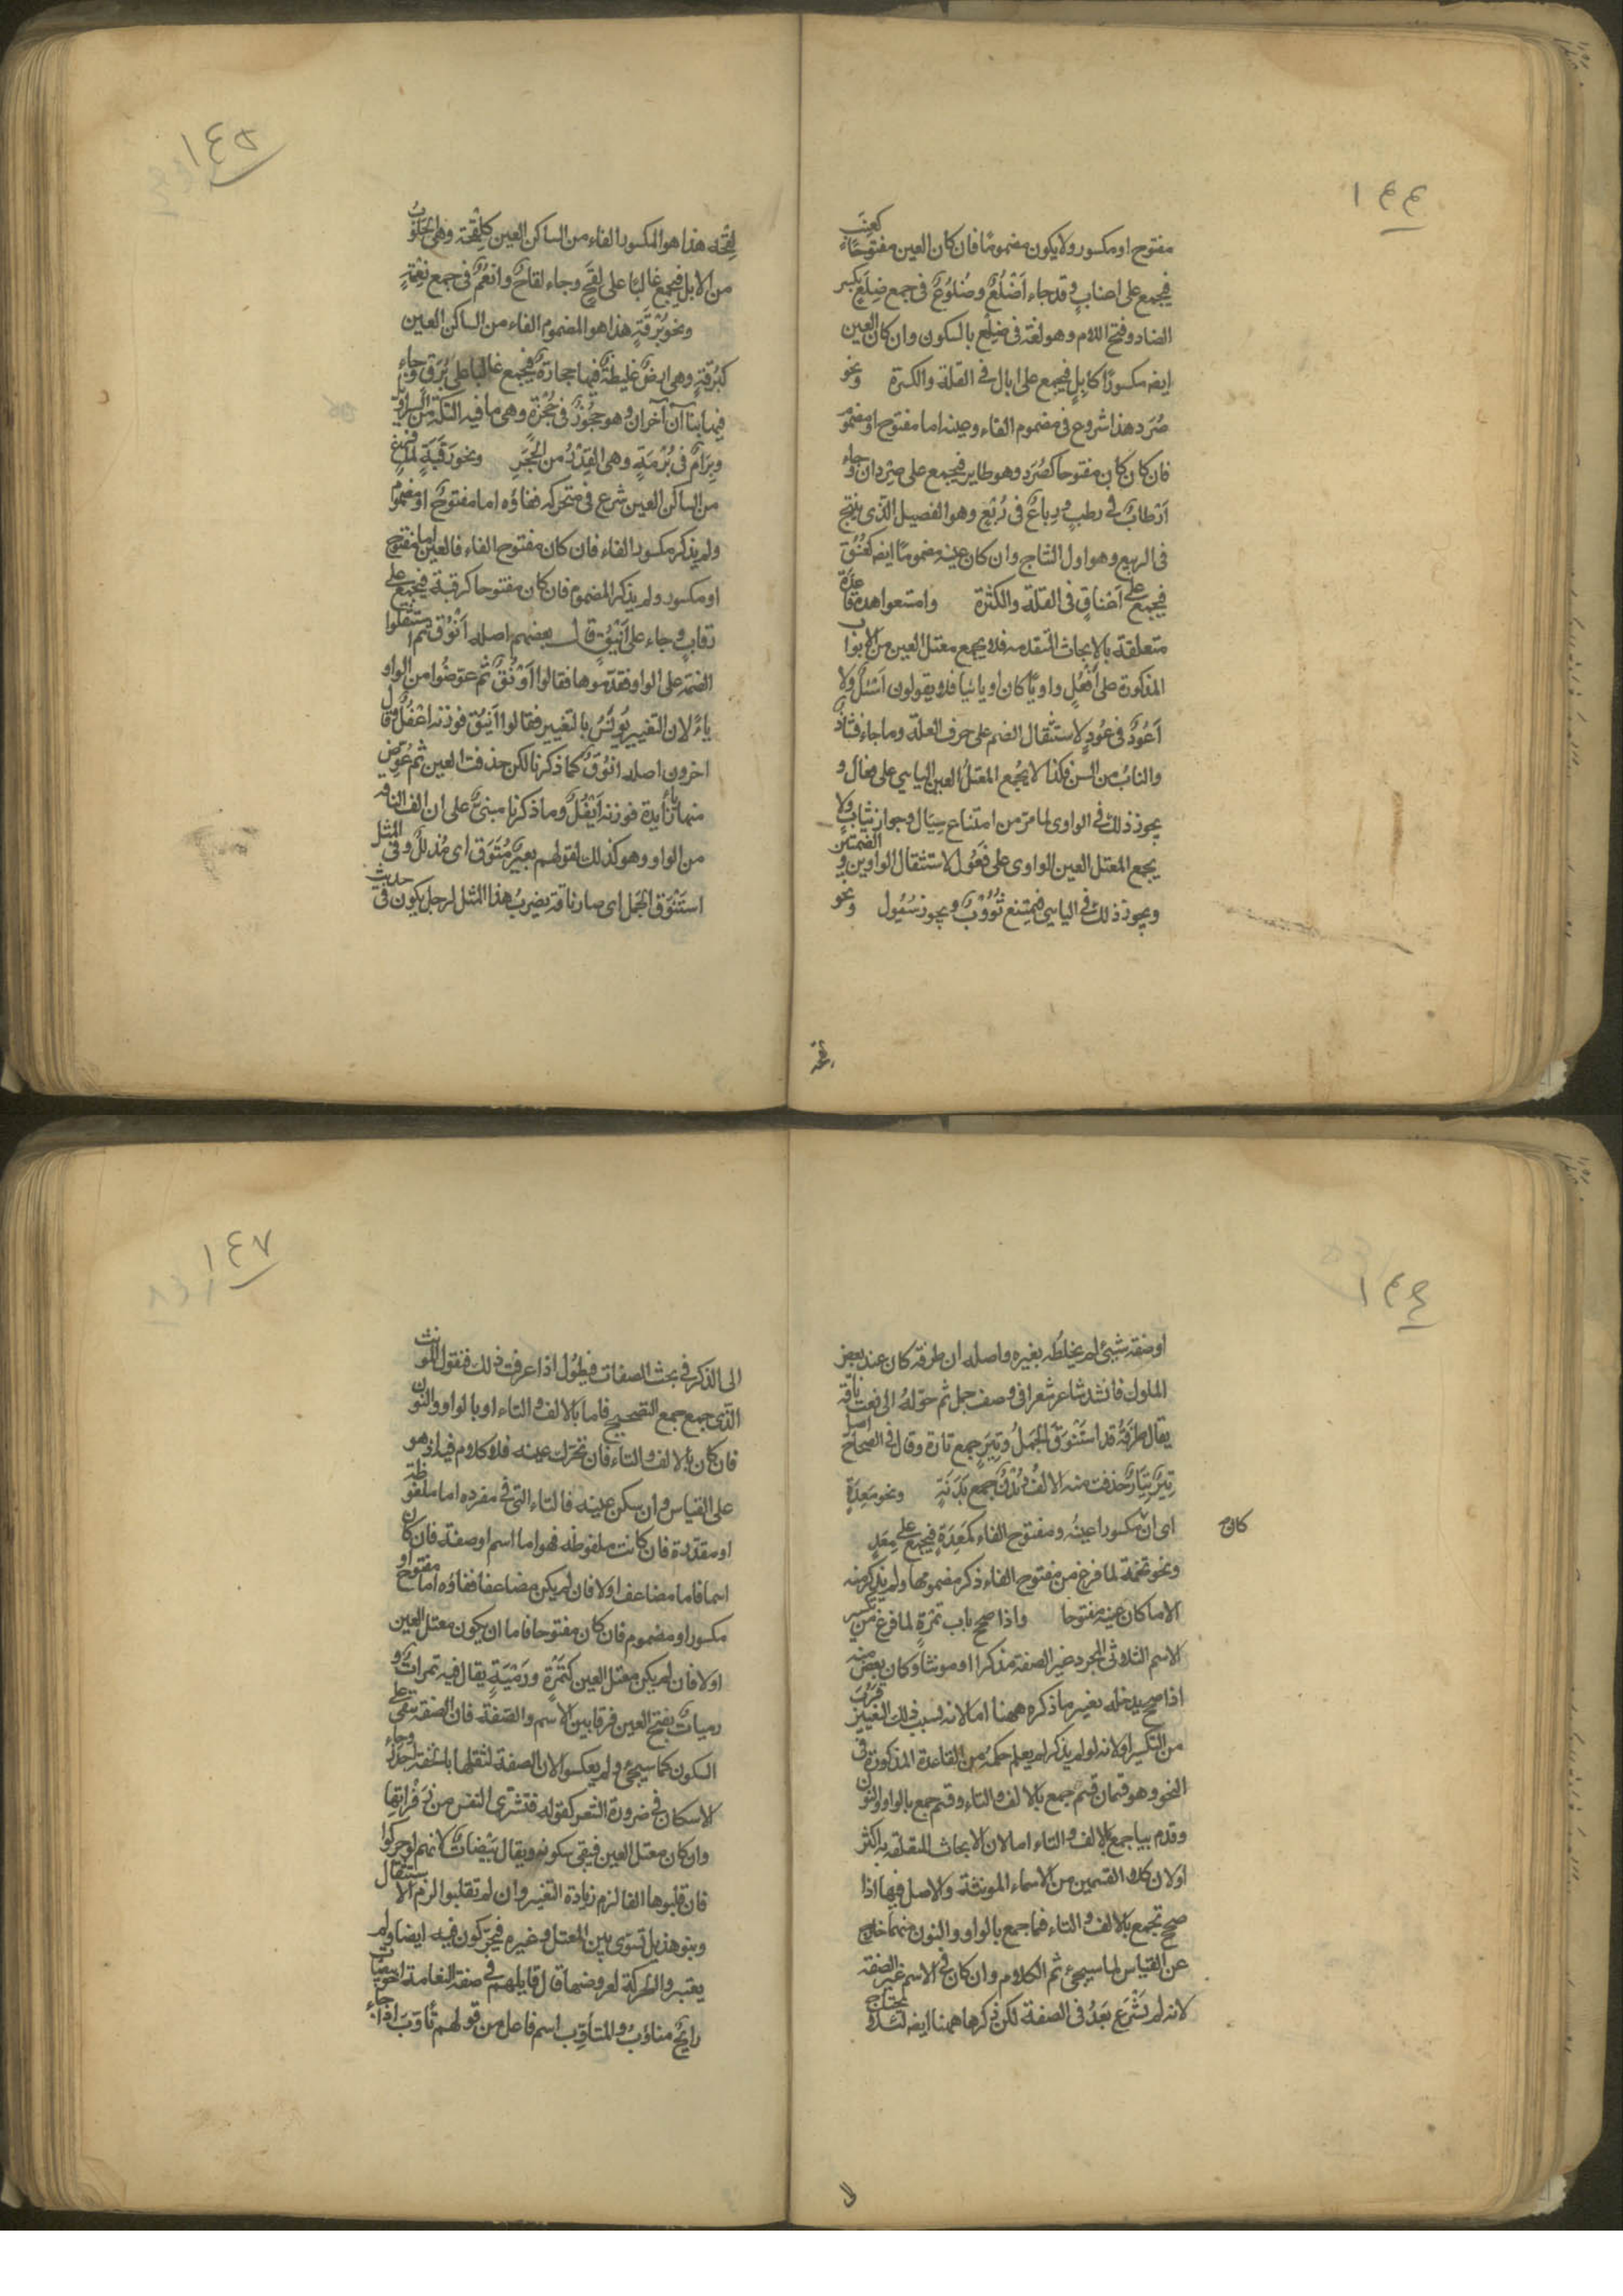 ١٤٤
مفتوح او مكسور ولا يكون مضموما فان كان العين مفتوحًا كعِنَبٍ
فيجمع على اعناب وقد جاء اَضْلُعٌ وضُلُوعٌ فى جمع ضِلَعٍ بكسر
الضاد وفتح اللام وهو لغة فى ضِلْع بالسكون وان كان العين
ايضه مكسورًا كابِلٍ فيجمع على ابال فى القلة والكثرة ونحو
صُرَد هذا شروع فى مضموم الفاء وعينه اما مفتوح او مضموم
فان كان مفتوحا كصُرَدٍ وهو طاير فيجمع على صِرْدان وجاء
اَرْطابٌ فى رطبٍ ورِباعٌ فى رُبَعٍ وهو الفصيل الذى ينتج
فى الربيع وهو اول النتاج وان كان عينه مضمومًا ايضه كعُنُقٍ
فيجمع على اَعْناقٍ فى القلة والكثرة وامتنعوا هذه قاعدة
متعلقة بالابحاث المتقدمه فلا يجمع معتل العين من الابواب
المذكورة على اَفْعُلٍ واويًّا كان او يائيا فلا يقولون اَسْيُلٌ ولا
اَعْوُدٌ فى عُودٍ لاستثقال الضم على حرف العلة وما جاء فشاذٌ
والناب من السن فكذا لا يجمع المعتل العين اليايى على فعال و
يجوز ذلك فى الواوى لما مرّ من امتناع سِيَال وجواز ثيابٍ ولا
يجمع المعتل العين الواوى على فُعُول لاستثقال الواوين و الضمتين
ويجوز ذلك فى اليايى فيمتنع ثُوُوْبٌ ويجوز سُيُول ونحو
لقحة
١٤٥
لِقْحَه هذا هو المكسور الفاء من الساكن العين كلِقْحَة وهى الحَلُوبُ
من الابل فيجمع غالبًا على لِقَحٍ وجاء لقاحٌ وانعُمٌ فى جمع نِعْمَةٍ
ونحو بُرْقَةٍ هذا هو المضموم الفاء من الساكن العين
كبُرقةٍ وهى ارضٌ غليظةٌ فيها حجارةٌ فيجمع غالبا على بُرَقٍ وجاء
فيه ابناآن آخران وهو حجُوزٌ فى حُجْزَةٍ وهى ما فيه التكّة من السراويل
وبِرَامٌ فى بُرْمَةٍ وهى القِدْرُ من الحَجَرِ ونحو رَقَبَةٍ لما فرغ
من الساكن العين شرع فى متحركه ففاؤه اما مفتوحٌ او مضمومٌ
ولم يذكر مكسور الفاء فان كان مفتوح الفاء فالعين اما مفتوح
او مكسور ولم يذكر المضموم فان كان مفتوحا كرقبة فيجمع على
رقابٍ وجاء على اَنْيُقٍ قال بعضهم اصله اَنْوُقٌ ثم استثقلوا
الضمّه على الواو فقدّموها فقالوا اَوْنُقٌ ثم عوّضُوا من الواو
ياءً لان التغيير يُونَسُ بالتغيير فقالوا اَنْيُقٌ فوزنه اَعْفُلٌ وقال
اخرون اصله انوُقٌ كما ذكرنا لكن حذفت العين ثم عُوّض
منها ياءٌ زايدة فوزنه اَيْفُلٌ وما ذكرنا مبنىٌ على ان الف الناقه
من الواو وهو كذلك لقولهم بعيرٌ مُنَوَّق اى مُذَلَّلٌ وفى المثل
استَنْوَق الجَمَل اى صار ناقة يضربُ هذا المثل لرجل يكون فى حديث
١٤٦
او صفة شيئٍ لم يخلطُه بغيره واصله ان طرفة كان عند بعض
الملوك فانشد شاعر شعرا فى وصف جمل ثم حوّلهُ الى نعت ناقة
يقال طرَفَةُ قد استَنْوَقَ الجَمَلُ وتِيَرٍ جمع تارة وقال فى الصحاح اصل
تِيَرٍ تِيَارٌ حذفت منه الالف وبُدْنٌ جمع بَدَنَةٍ ونحو مَعِدَةٍ
اى انّ مكسورا عينُه ومفتوح الفاء كمَعِدَةٍ فيجمع على مِعَدٍ
ونحو تخمَة لما فرغ من مفتوح الفاء ذكر مضمومها ولم يذكر منه
الا ما كان عينه مفتوحا واذا صحح باب تمْرَةٍ لما فرغ من تكسير
الاسم الثلاثى المجرد غير الصفة مذكرا او مونثا وكان بعضٌ منه
اذا صحح يدخله تغيير ما ذكره ههنا اما لانه بسبب ذلك التغيير قرُبَ
من التكسير او لانه لو لم يذكر لم يعلم حكمُه من القاعدة المذكورة فى
النحو وهو قسمان قسم جمع بالالف والتاء وقسم جمع بالواو والنون
وقدم بيا جمع الالف والتاء اما لان الابحاث المتعلقة به اكثر
او لان كلا القسمين من الاسماء المونثة والاصل فيها اذا
صحح تجمع بالالف والتاء فما جمع بالواو والنون منهما خارج
عن القياس لما سيجئ ثم الكلام وان كان فى الاسم غير الصفة
لانه لم يَشْرَع بَعَدُ فى الصفة لكن ذكرها ههنا ايضه لئلا يحتاج
١٤٧
الى الذكر فى بحث الصفات فيطُول اذا عرفت ذلك فنقول المونث
الذى جمع جمع التصحيح فاما بالالف والتاء او بالواو والنون
فان كان بالالف والتاء فان تحرّك عينه فلا كلام فيه اذ هو
على القياس وان سكن عينه فالتاء التى فى مفرده اما ملفوظة
او مقدّرة فان كانت ملفوظه فهو اما اسم او صفة فان كان
اسما فاما مضاعف اولا فان لم يكن مضاعفا ففاؤه اما مفتوح او
مكسور او مضموم فان كان مفتوحا فاما ان يكون معتل العين
اولا فان لم يكن معتل العين كتَمْرَةٍ ورَمْيَةٍ يقال فيه تمراتٌ و
رمياتٌ بفتح العين فرقا بين الاسم والصّفة فان الصفة تبقى على
السكون كما سيجئ ولم يعكسوا لان الصفة لثقلها بالخفة اجدر وجاء
الاسكان فى ضرورة الشعر كقوله فتشترى النفس من زَفْراتِها
وان كان معتل العين فيبقى سكونه ويقال بَيْضاتٌ لانهم لو حركوا
فان قلبوها الفا لزم زيادة التغيير وان لم تقلبوا لزم الاستثقال
وبنو هذيل تسوّى بين المعتل وغيره فيحرّكون فيه ايضا ولم
يعتبر والحركة لعروضها قال قايلهم فى صفة النعامة اخو بيضات
رايحٌ متاوّبٌ والمتأوّب اسم فاعل من قولهم تأوّبَ اذا جاء